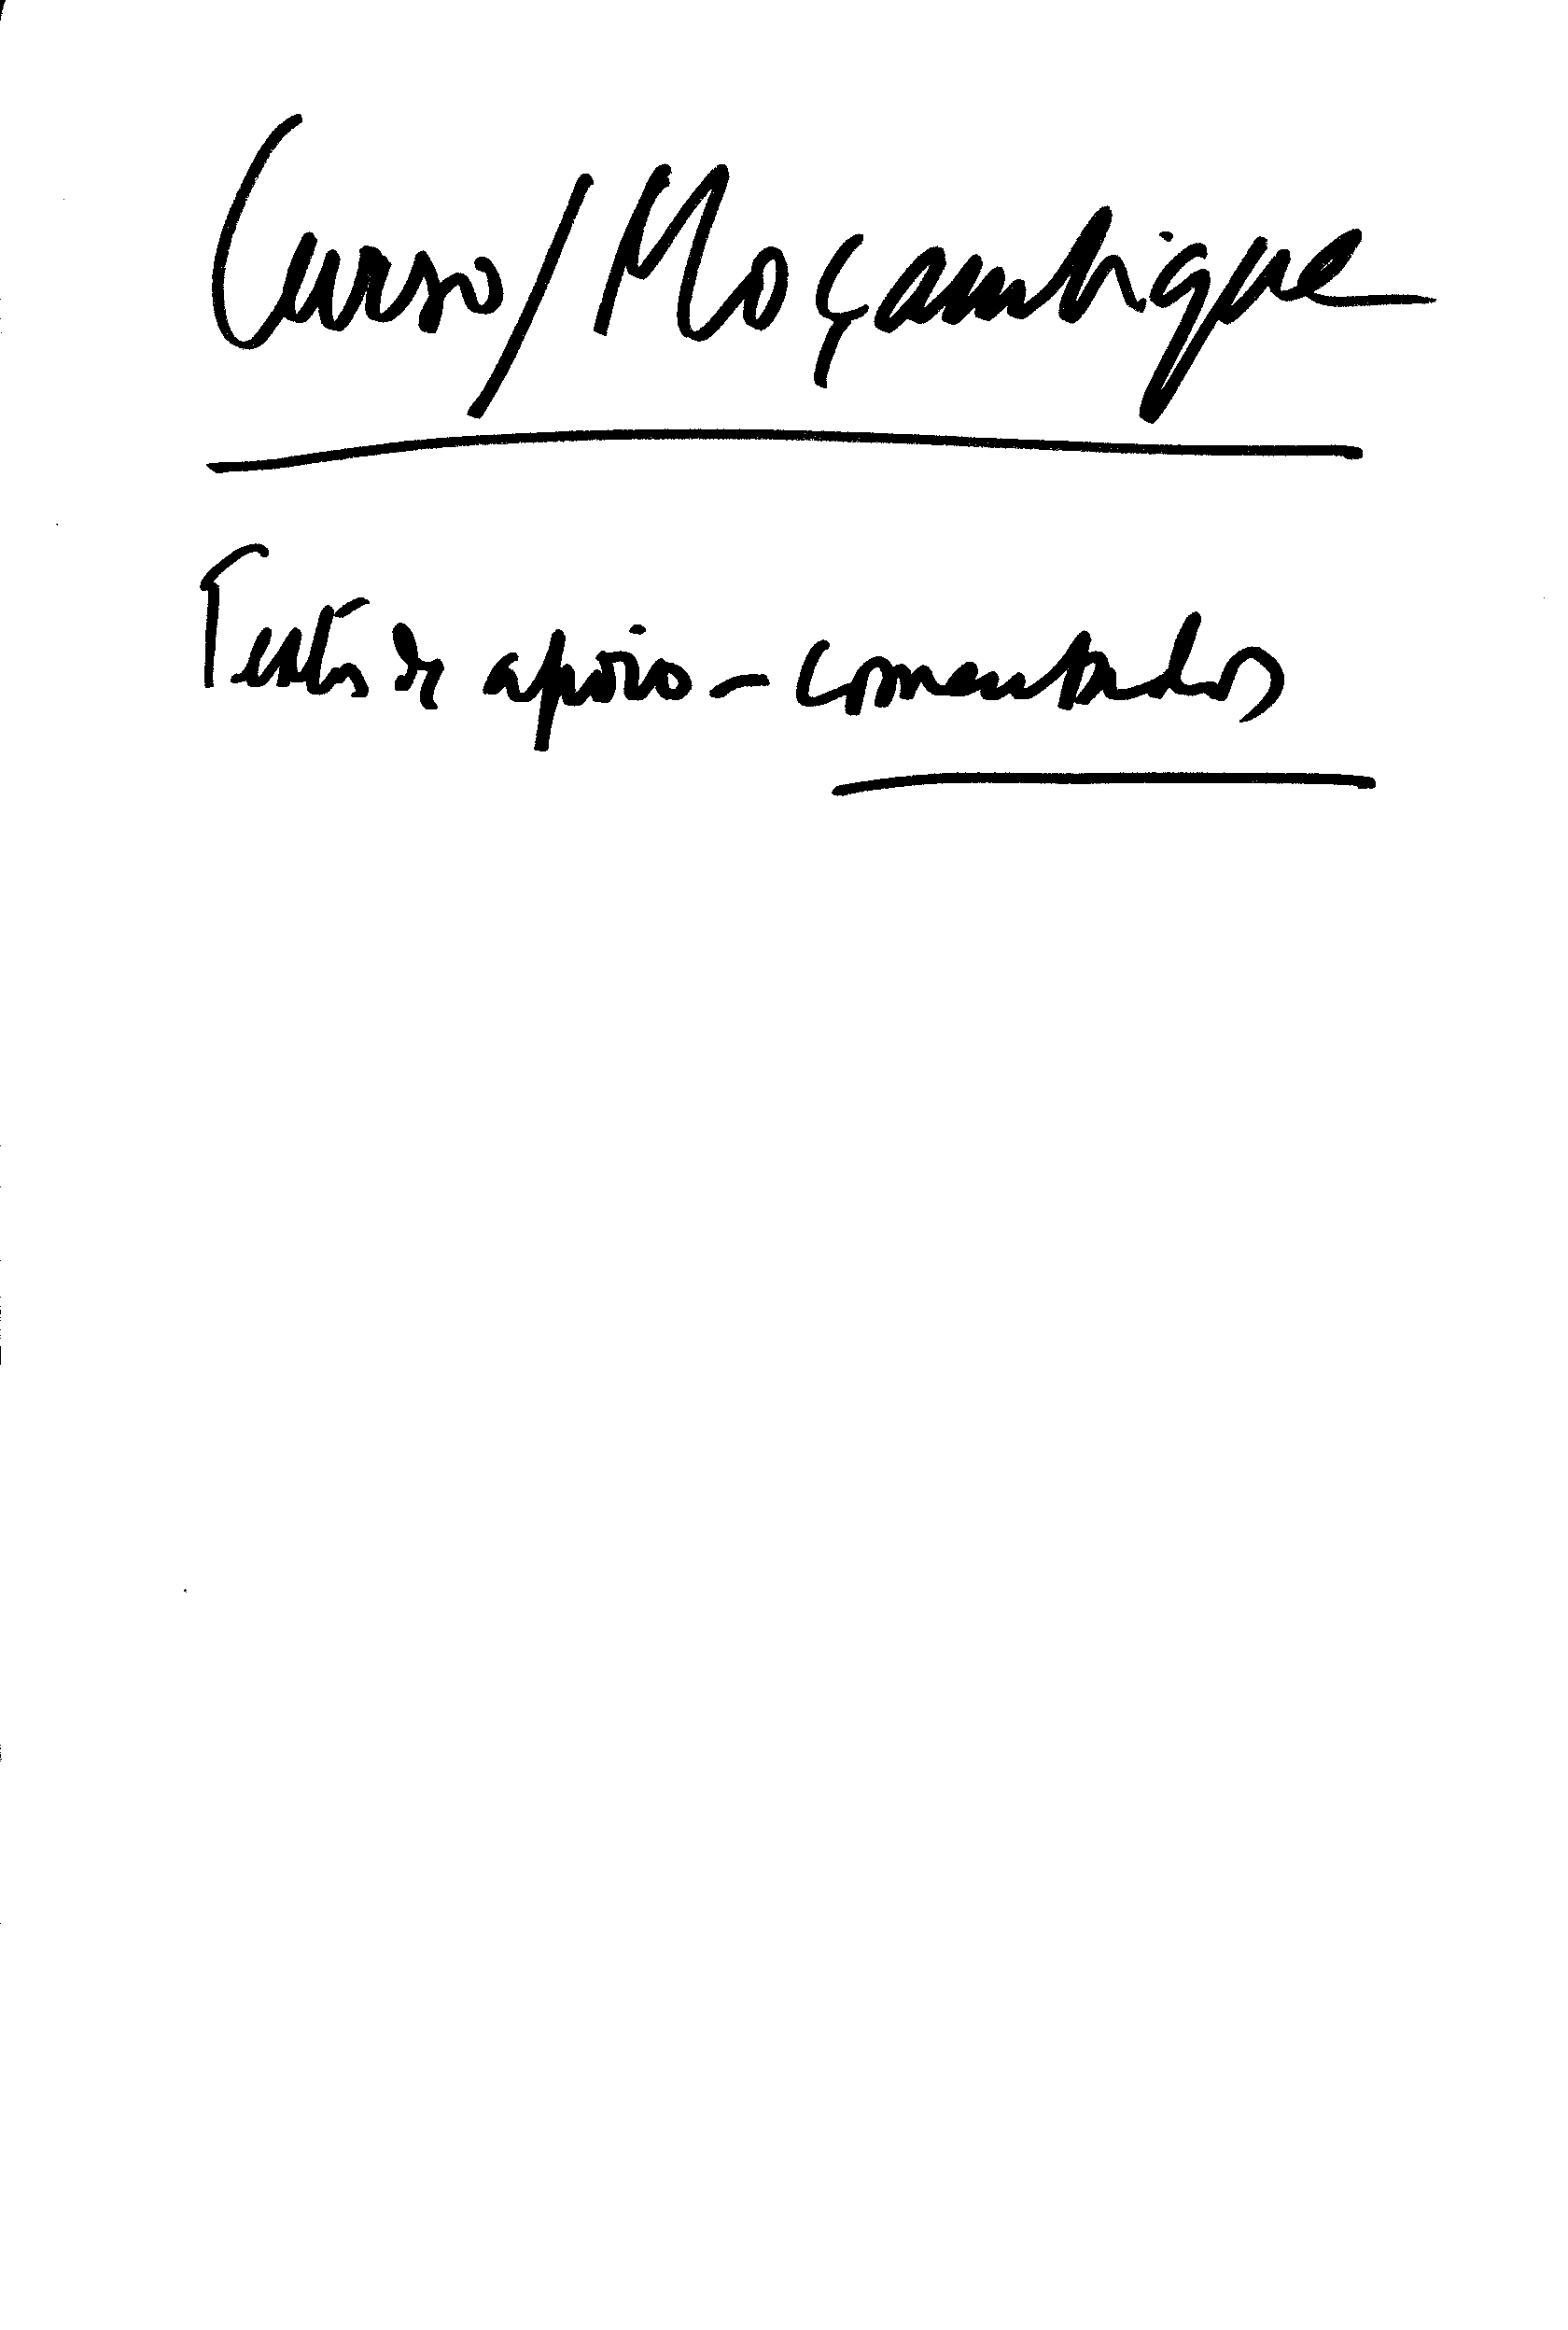 Curso/Moçambique
Textos de apoio – comentados